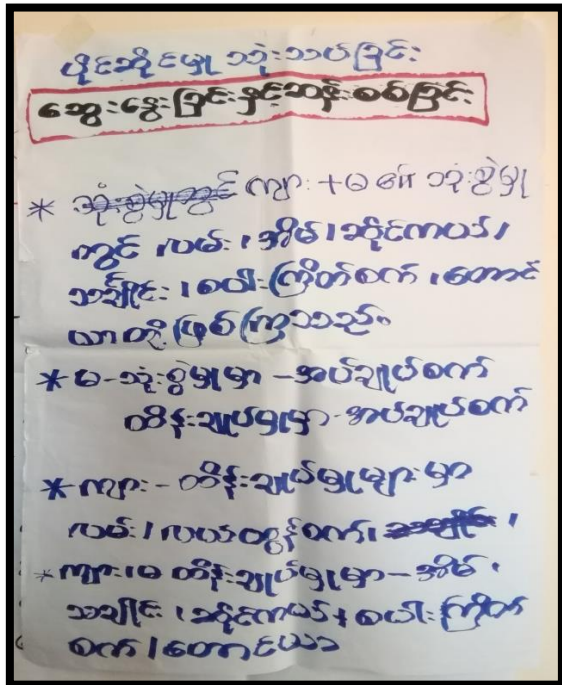 ပိုင်ဆိုင်မှု သုံးသပ်ခြင်း
ဆွေးနွေးခြင်းနှင့်ဆန်းစစ်ခြင်း
* သုံးစွဲမှုတွင် ကျား + မ ၏ သုံးစွဲမှု
တွင် ၊ လမ်း ၊ အိမ် ၊ ဆိုင်ကယ် ၊
သင်္ချိုင်း ၊ စပါးကြိတ်စက် ၊ တောင်
ယာတို့ ဖြစ်ကြသည်။
* မ - သုံးစွဲမှုမှာ - အပ်ချုပ်စက်
ထိန်းချုပ်မှုမှာ - အပ်ချုပ်စက်
* ကျား - ထိန်းချုပ်မှုများမှာ
လမ်း ၊ လယ်ထွန်စက် ၊ သင်္ချိုင်း ၊
* ကျား ၊ မ ထိန်းချုပ်မှုမှာ - အိမ် ၊
သင်္ချိုင်း ၊ ဆိုင်ကယ် ၊ စပါးကြိတ်
စက် ၊ တောင်ယာ